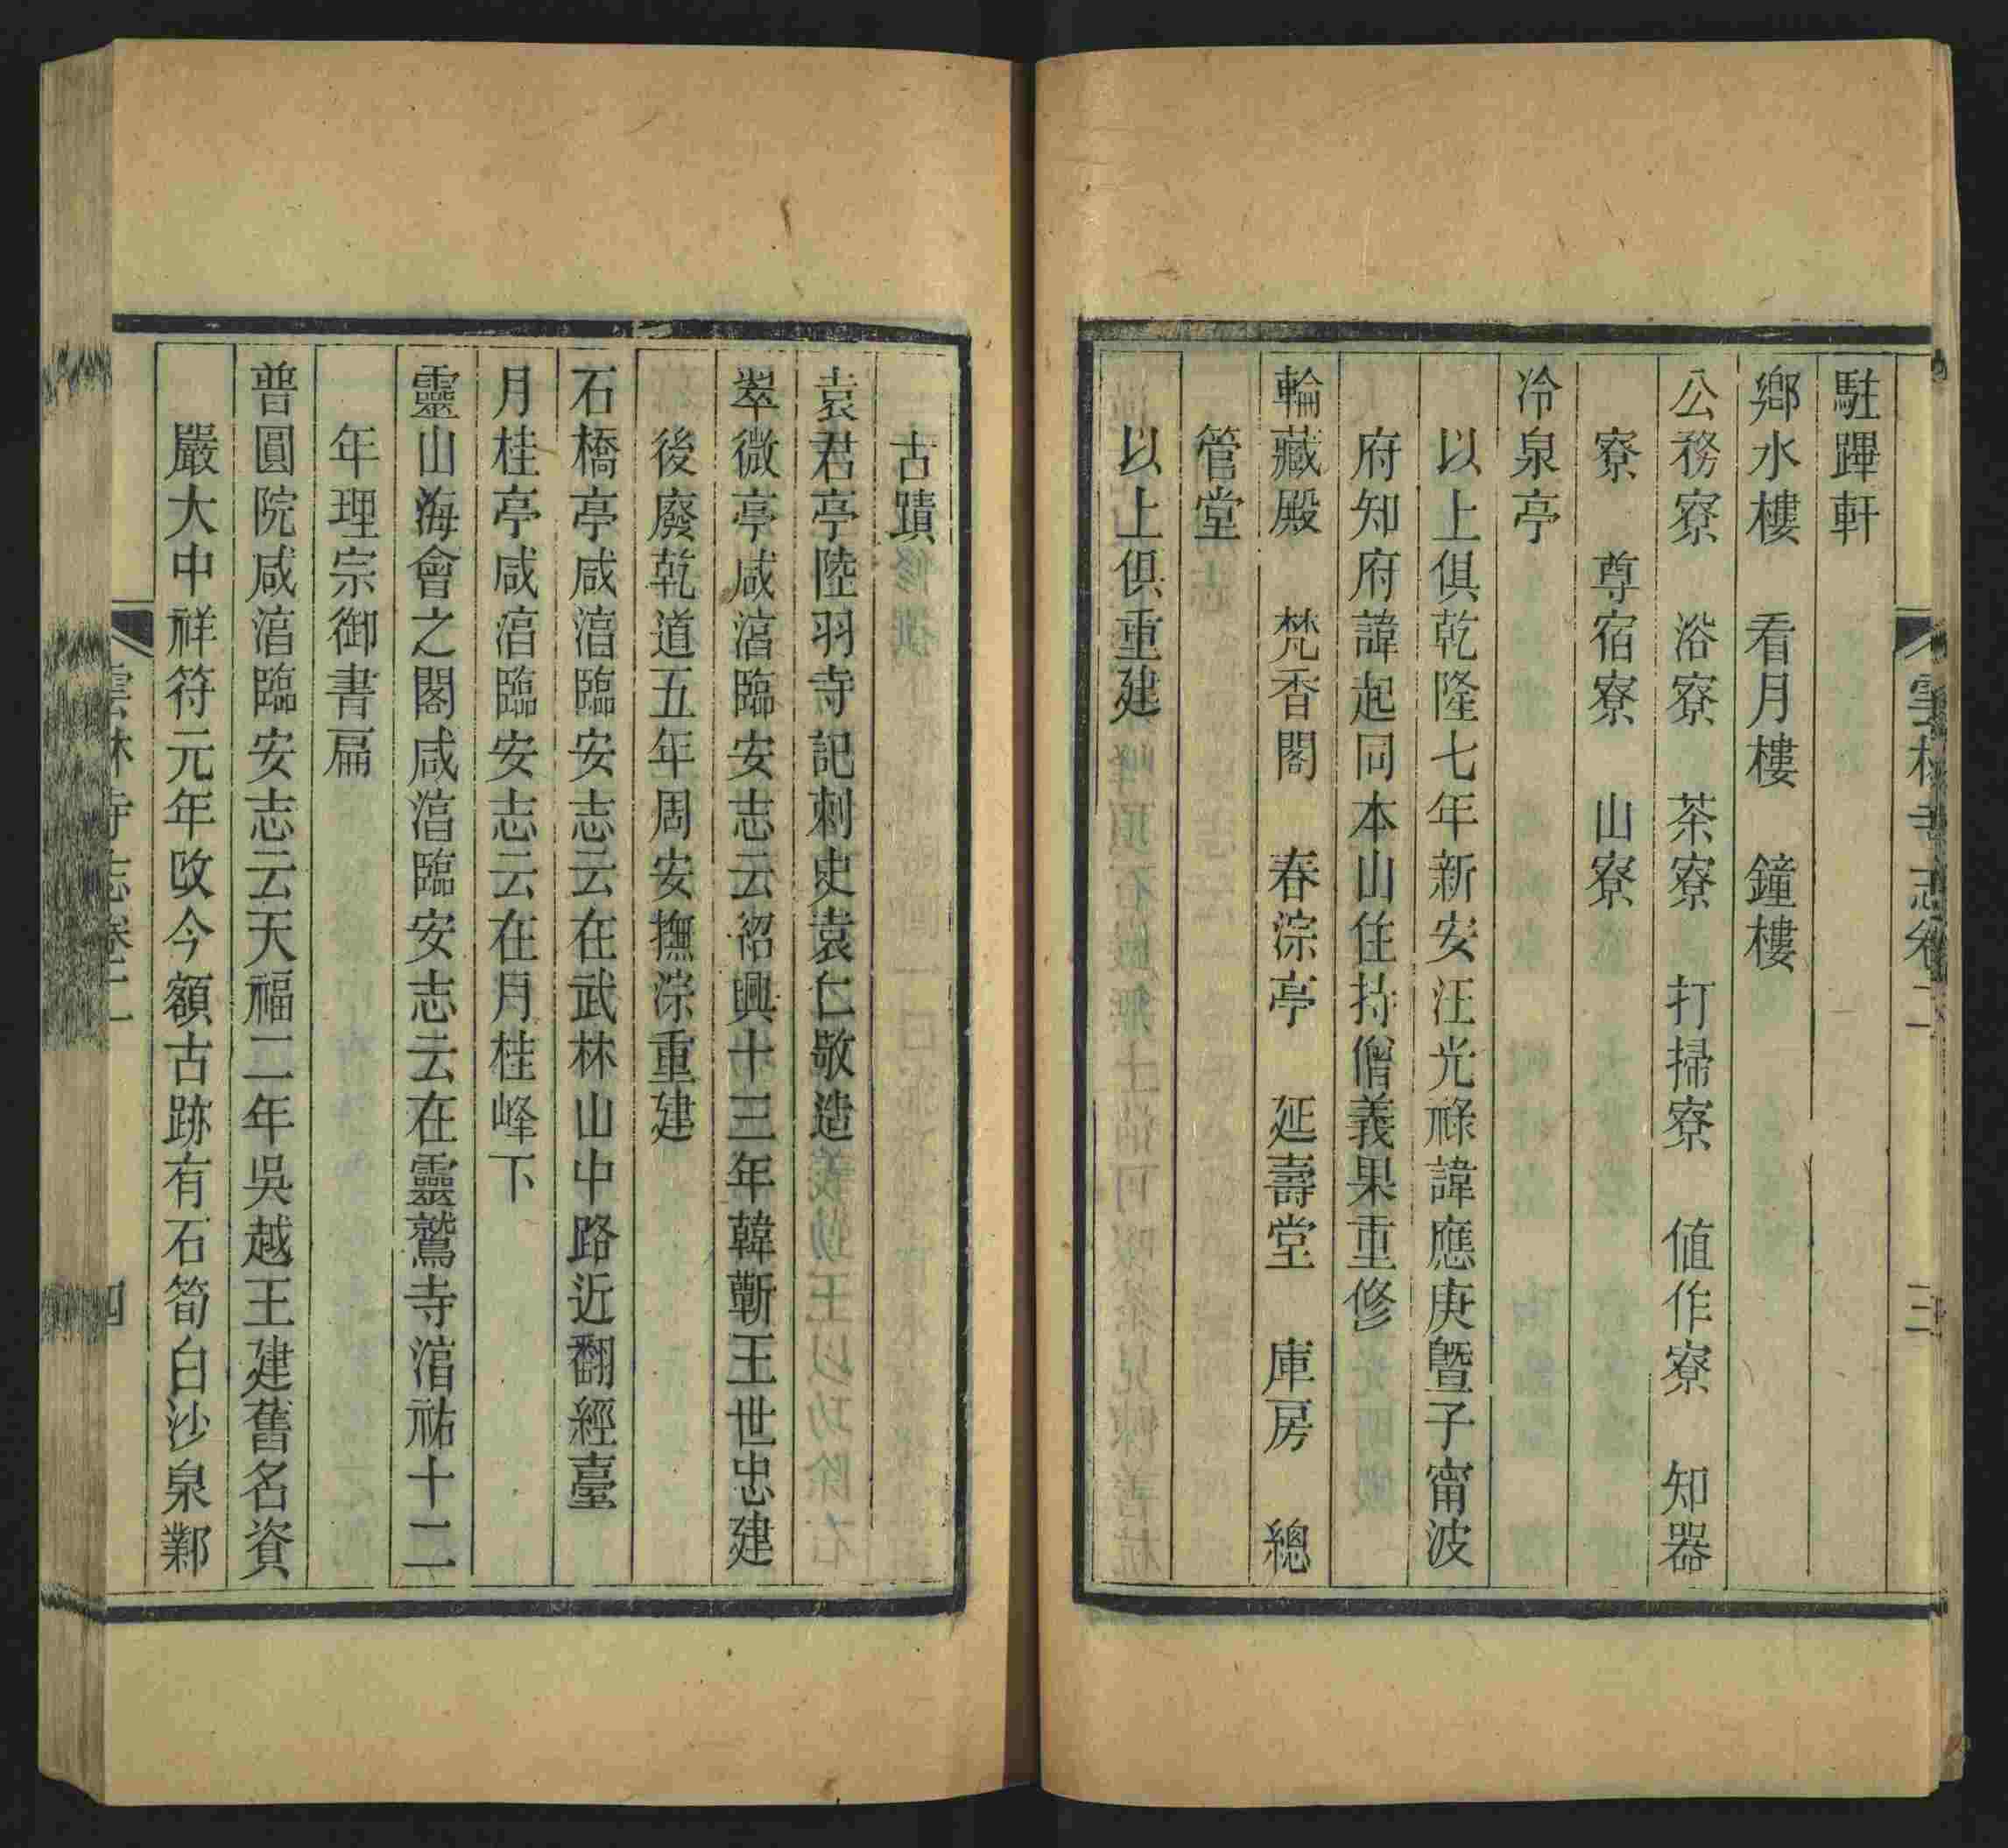 駐蹕軒
鄉水樓　看月樓　鐘樓
公務寮　浴寮　茶寮　打掃寮　值作寮　知器
寮　尊宿寮　山寮
冷泉亭
以上俱乾隆七年新安汪光祿諱應庚暨子甯波
府知府諱起同本山住持僧義果重修
輪藏殿　梵香閣　春淙亭　延壽堂　庫房　總
管堂
以上俱重建
雲林寺志卷二　三
古蹟
袁君亭陸羽寺記刺史袁仁敬造
翠微亭咸淳臨安志云紹興十三年韓蘄王世忠建
後廢乾道五年周安撫淙重建
石橋亭咸淳臨安志云在武林山中路近翻經臺
月桂亭咸淳臨安志云在月桂峰下
靈山海會之閣咸淳臨安志云在靈鷲寺淳祐十二
年理宗御書扁
普圓院咸淳臨安志云天福二年吳越王建舊名資
嚴大中祥符元年改今額古跡有石筍白沙泉鄴
雲林寺志卷二　四